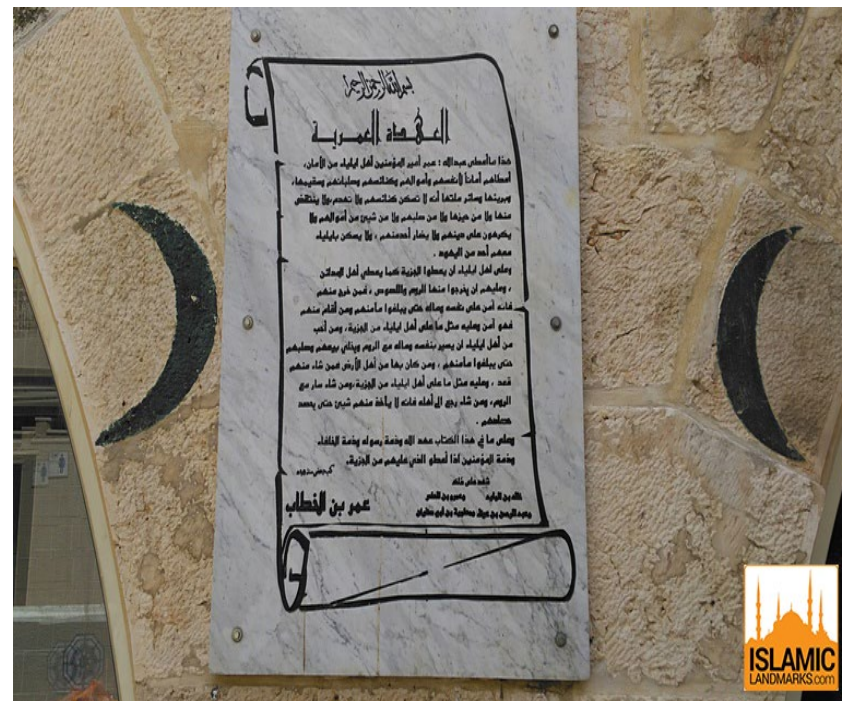 بسم الله الرحمن الرحيم
العهدة العمرية
هذا ما أعطى عبدالله : عمر أمير المؤمنين أهل ايلياء من الأمان،
أعطاهم أماناً لأنفسهم وأموالهم وكنائسهم وصلبانهم وسقيمها،
وبريئها وسائر ملتها أنه لا تسكن كنائسهم ولا تهدم،ولا ينتقض
منها ولا من حيزها ولا من صلبهم ولا من شيئ من أموالهم ولا
يكرهون على دينهم ولا يضار أحدمنهم ، ولا يسكن بايلياء
معهم أحد من اليهود .
وعلى اهل ايلياء ان يعطوا الجزية كما يعطي أهل المدائن
، وعليهم ان يخرجوا منها الروم واللصوص ، فمن خرج منهم
فانه آمن على نفسه وماله حتى يبلغوا مأمنهم ومن أقام منهم
فهو آمن وعليه مثل ما على أهل ايلياء من الجزية، ومن أحب
من أهل ايلياء ان يسير بنفسه وماله مع الروم ويخلي بيعهم وصلبهم
حتى يبلغوا مأمنهم ، ومن كان بها من أهل الأرض فمن شاء منهم
قعد ، وعليه مثل ما على أهل ايلياء من الجزية،ومن شاء سار مع
الروم، ومن شاء رجع الى أهله فانه لا يأخذ منهم شيئ حتى يحصد
حصادهم .
وعلى ما في هذا الكتاب عهد الله وذمة رسوله وذمة الخلفاء
وذمة المؤمنين اذا أعطو الذي عليهم من الجزية.
شهد على ذلك
خالد بن الوليد وعمرو بن العاص
وعبد الرحمن بن عوف ومعاوية بن أبي سفيان
عمر بن الخطاب
ISLAMIC
LANDMARKS.com